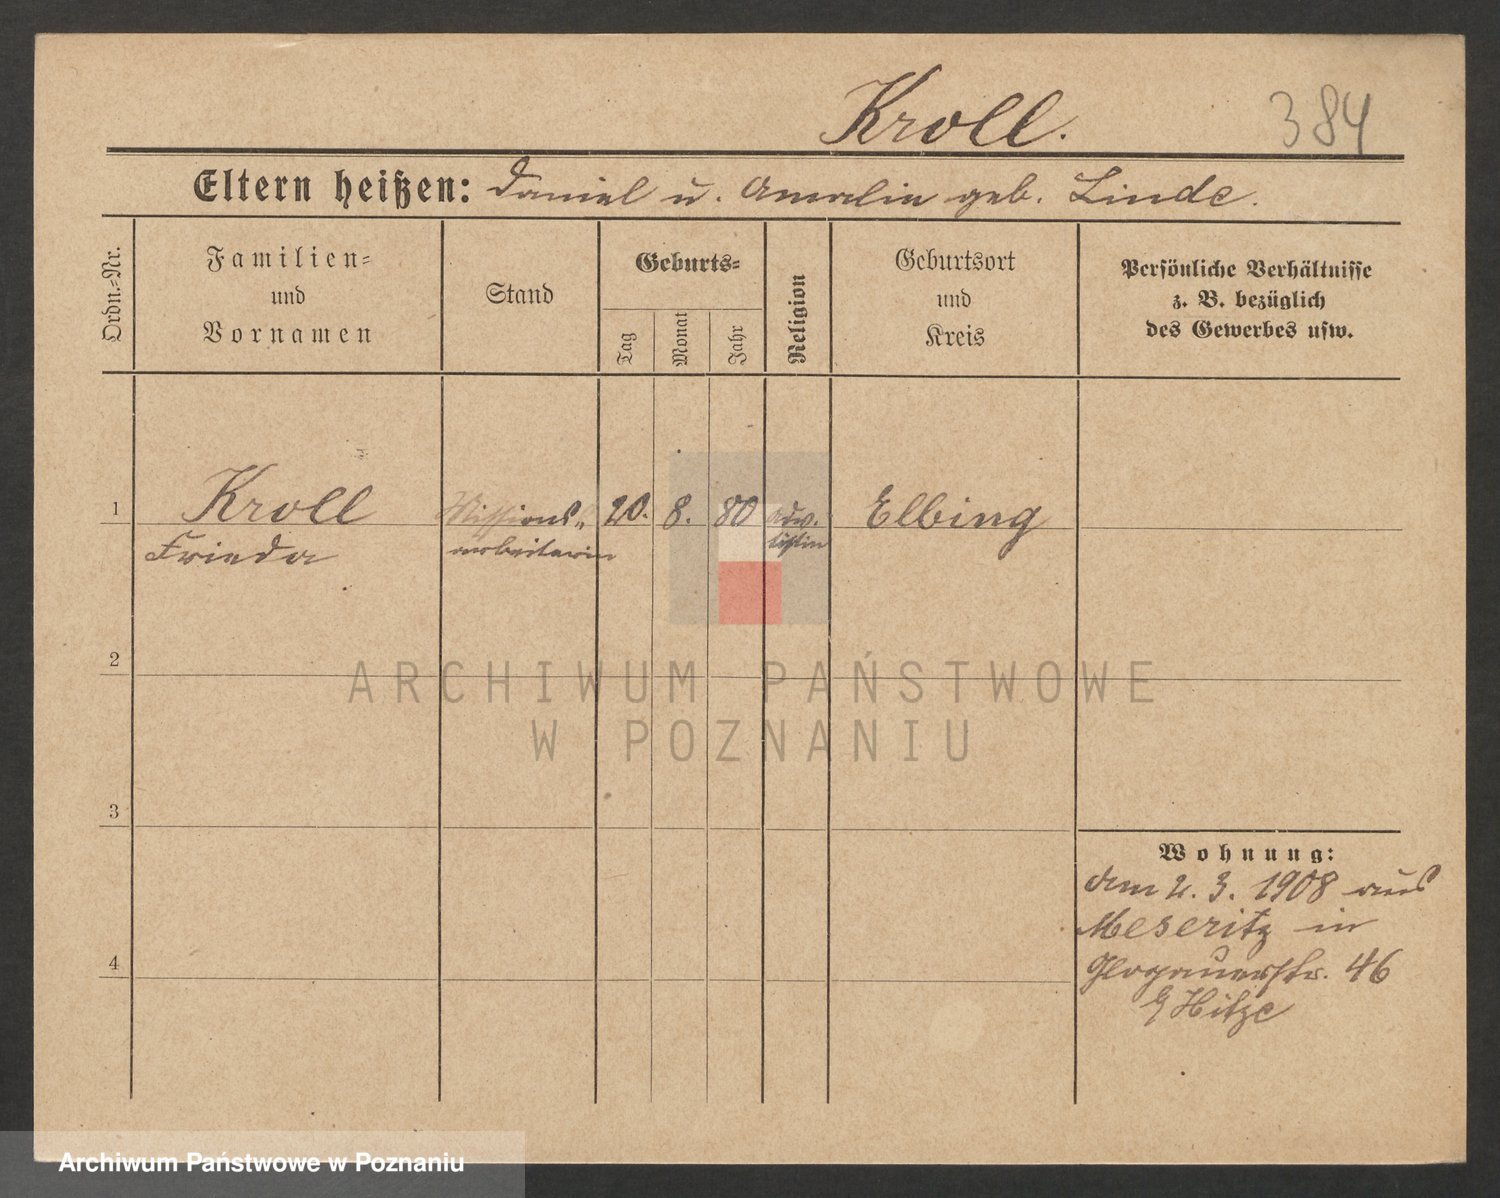 Kroll.
384
Eltern heißen: Daniel u. Amalie geb. Linde.
Ordn.-Nr.
Familien-
und
Vornamen
Stand
Geburts-
Tag
Monat
Jahr
Religion
Geburtsort
und
Kreis
Persönliche Verhältnisse
z. B. bezüglich
des Gewerbes usw.
1
Kroll
Frieda
Missions-
arbeiterin
20.
8.
80
Adv.
tistin
Elbing
2
ARCHIWUM PAŃSTWOWE
W POZNANIU
3
4
Wohnung:
den 2. 3. 1908 aus
Meseritz in
Glogauerstr. 46
Hitze
Archiwum Państwowe w Poznaniu